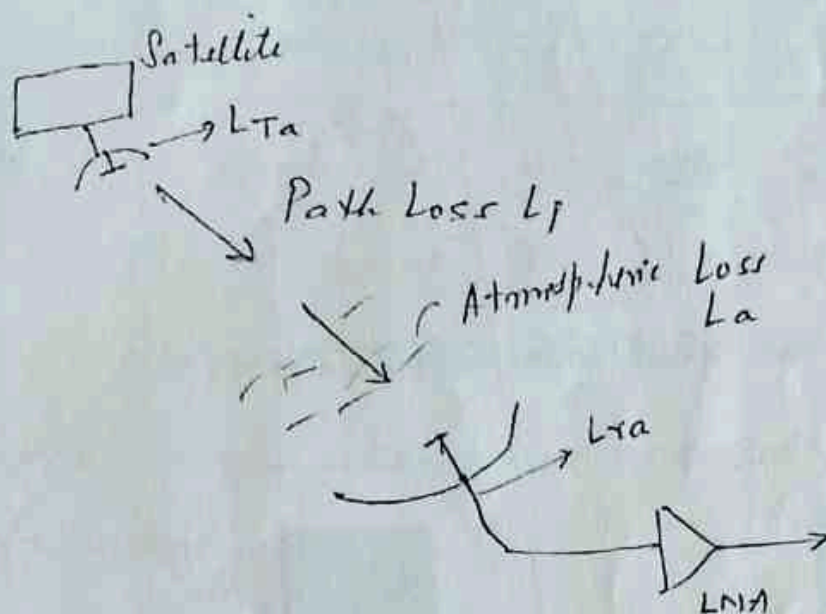 Satellite
LTa
Path Loss Lp
Atmospheric Loss
La
Lra
LNA